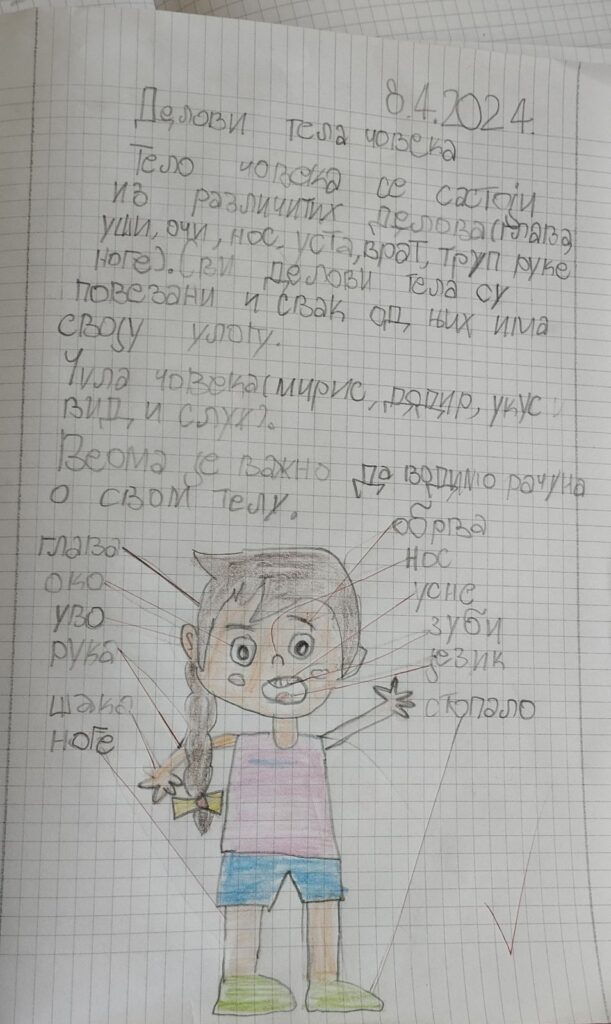 8.4.2024.
Делови тела човека
Тело човека се састоји
из различитих делова (глава,
уши, очи, нос, уста, врат, труп руке
ноге). Сви делови тела су
повезани и свак од њих има
своју улогу.
Чула човека (мирис, додир, укус
вид, и слух).
Веома је важно да водимо рачуна
о свом телу.
глава
око
уво
рука
шака
ноге
обрва
нос
усне
зуби
језик
стопало